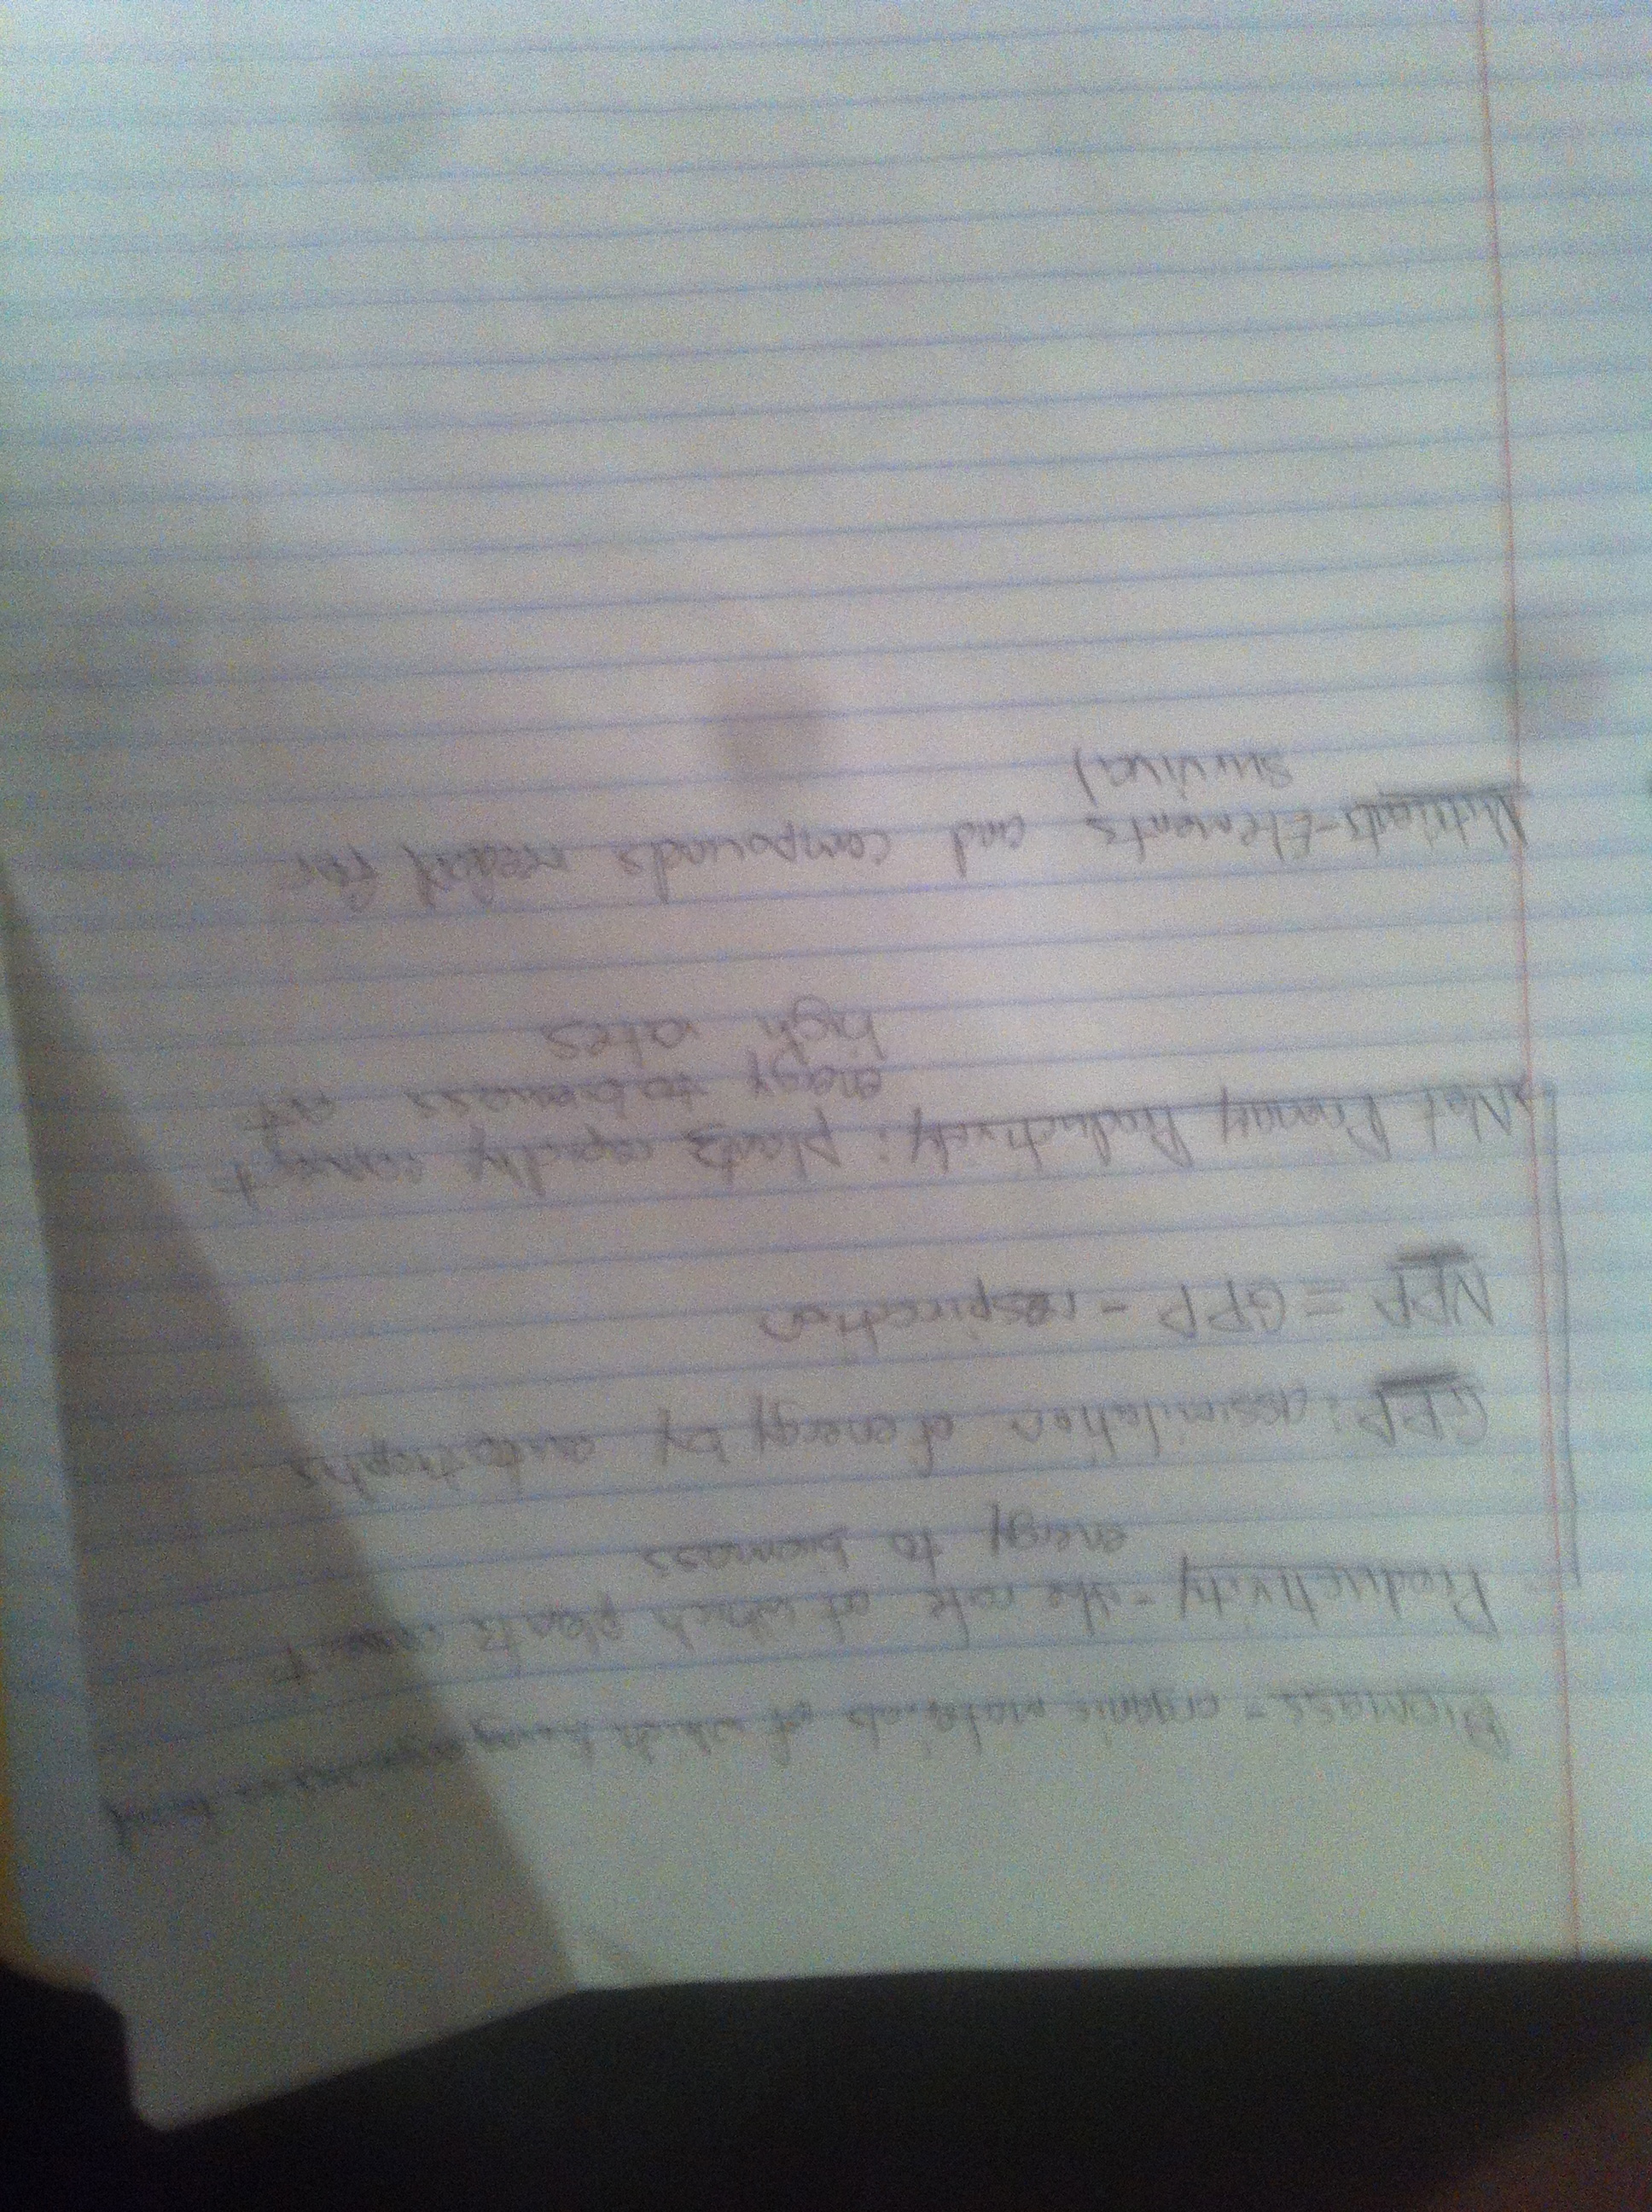 Biomass - organic materials of which living organisms are formed
Productivity - the rate at which plants convert
energy to biomass
GPP: assimilation of energy by autotrophs
NPP = GPP - respiration
Net Primary Productivity: plants rapidly convert
energy to biomass at
high rates
Nutrients - Elements and compounds needed for
survival